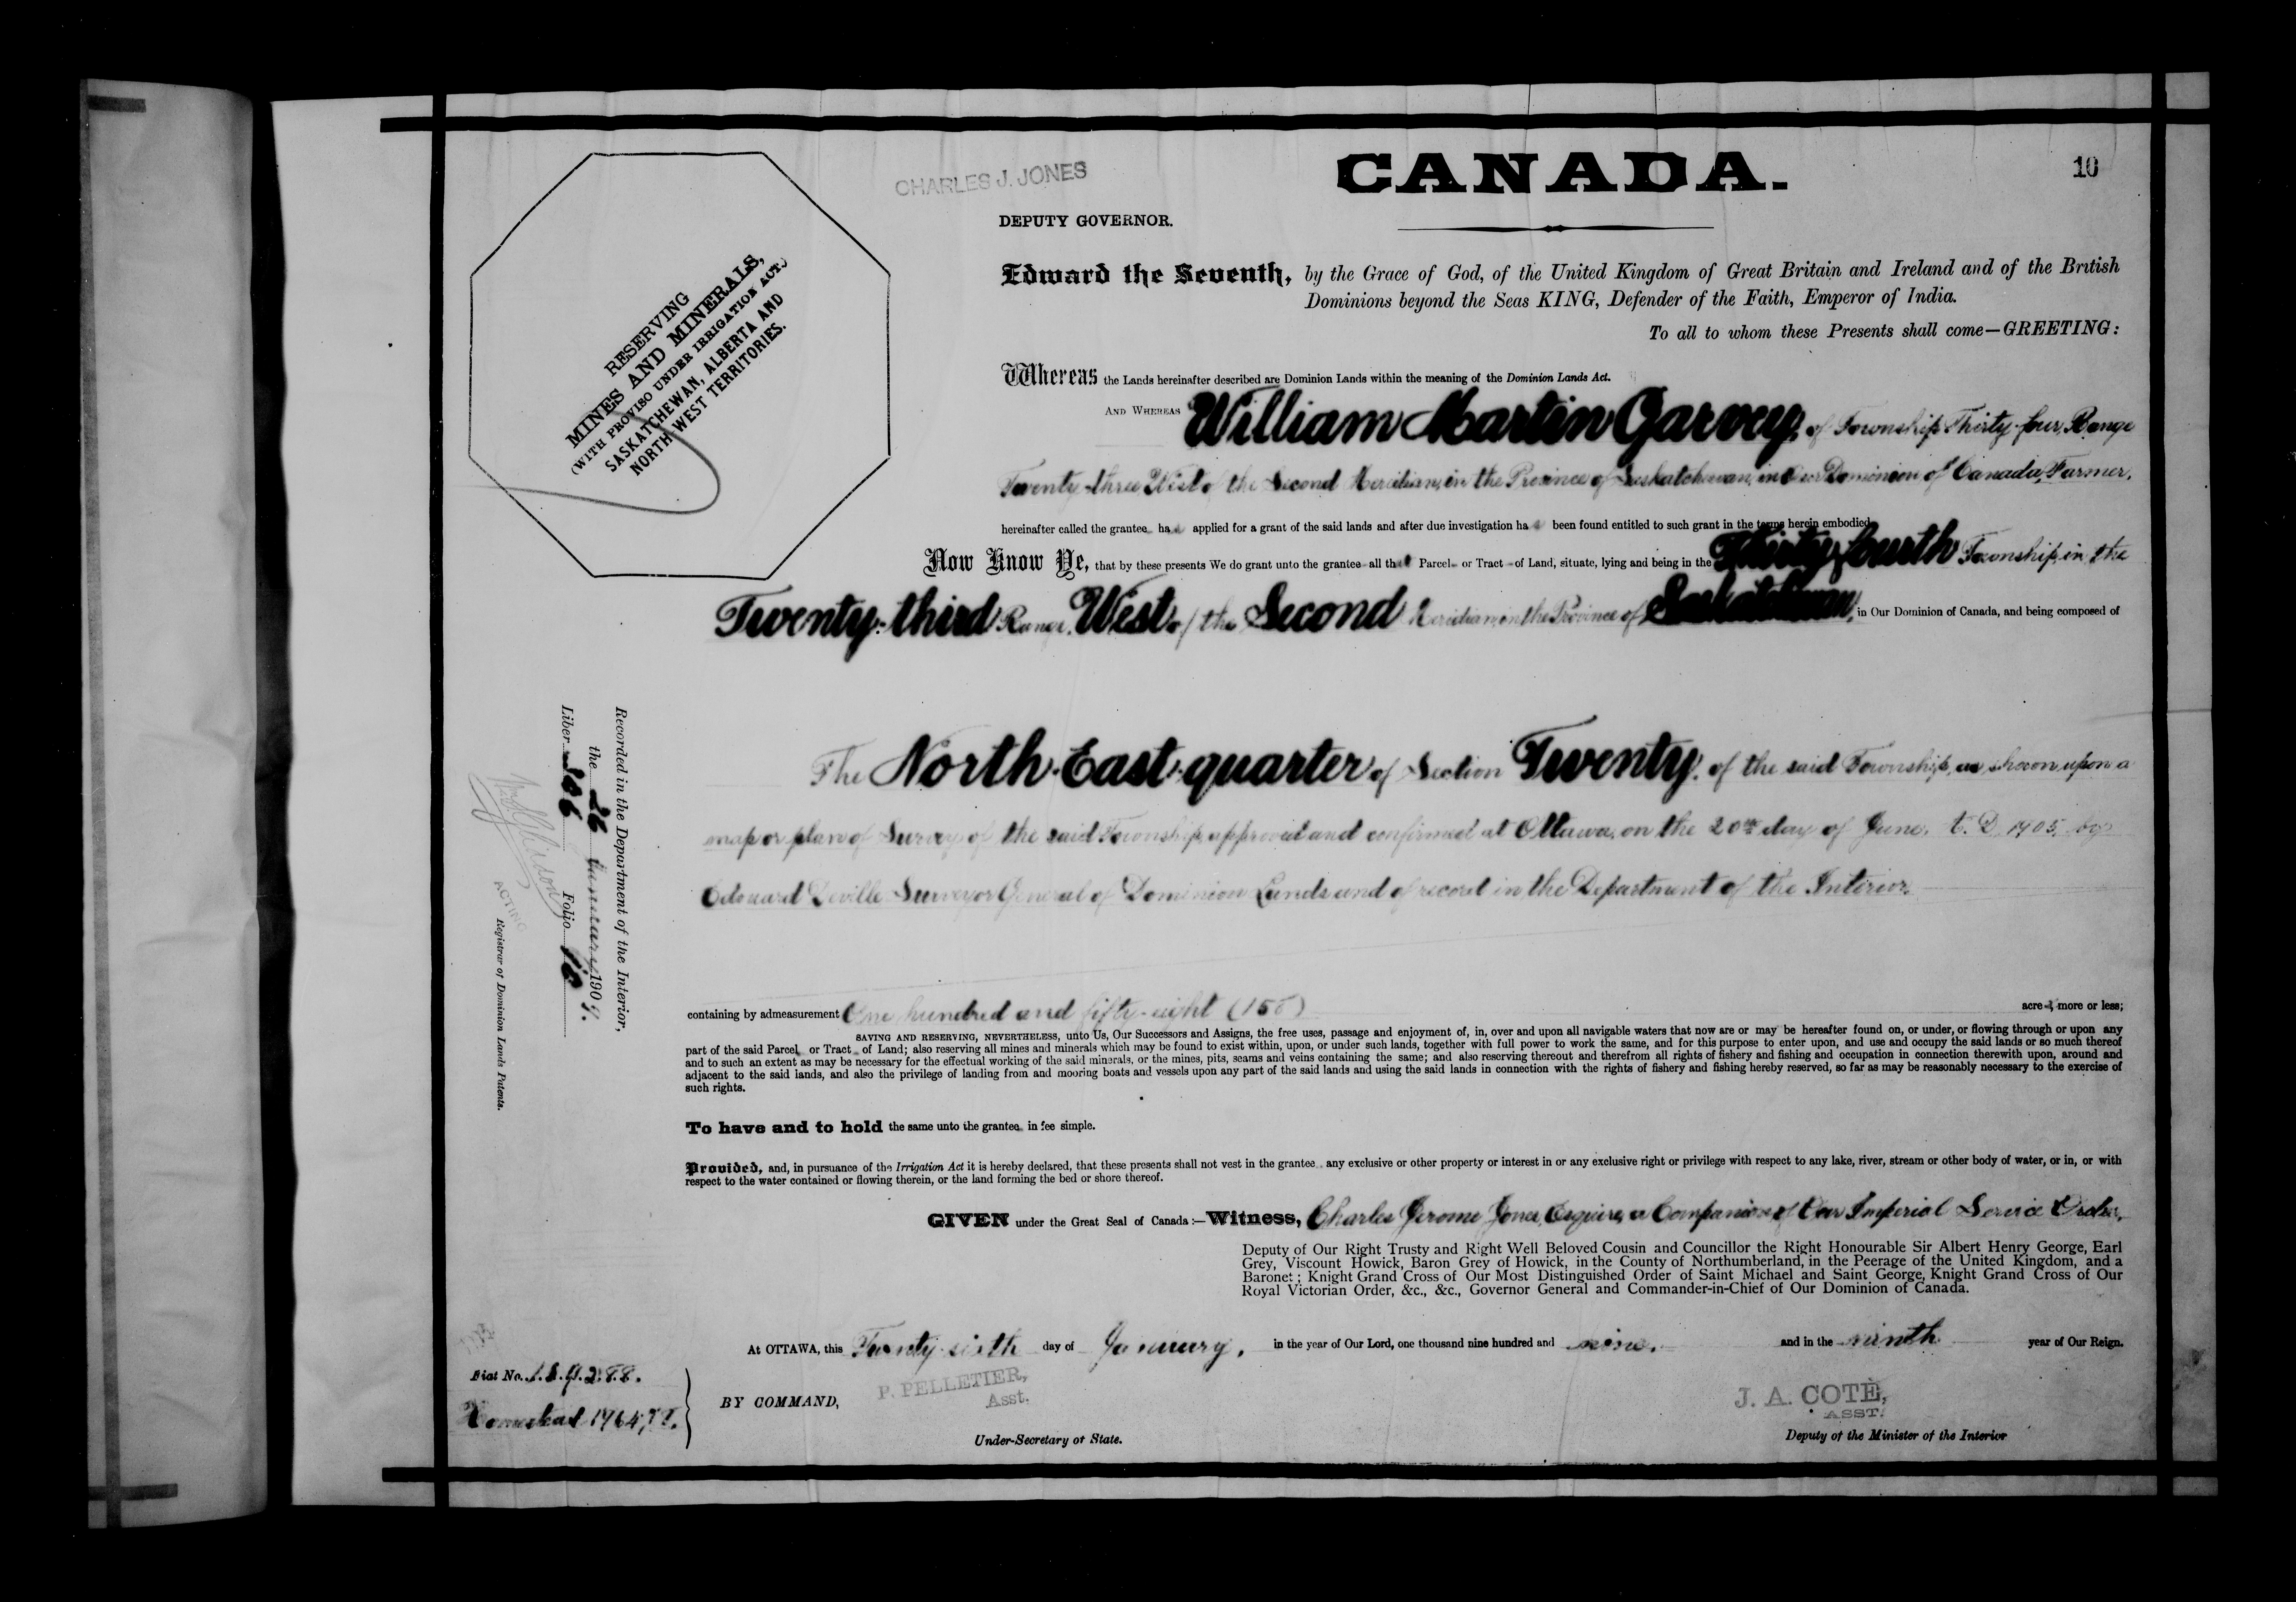 CHARLES J. JONES
CANADA.
10
DEPUTY GOVERNOR.
RESERVING
MINES AND MINERALS,
(WITH PROVISO UNDER IRRIGATION ACT.)
SASKATCHEWAN, ALBERTA AND
NORTH WEST TERRITORIES.
Edward the Seventh, by the Grace of God, of the United Kingdom of Great Britain and Ireland and of the British
Dominions beyond the Seas KING, Defender of the Faith, Emperor of India.
To all to whom these Presents shall come—GREETING:
Whereas the Lands hereinafter described are Dominion Lands within the meaning of the Dominion Lands Act.
AND WHEREAS William Martin Garvey, of Township Thirty-four, Range
Twenty-three West of the Second Meridian, in the Province of Saskatchewan, in Our Dominion of Canada, Farmer,
hereinafter called the grantee has applied for a grant of the said lands and after due investigation has been found entitled to such grant in the terms herein embodied
Now Know Ye, that by these presents We do grant unto the grantee all that Parcel or Tract of Land, situate, lying and being in the Thirty-fourth Township, in the
Twenty-third Range, West of the Second Meridian, in the Province of Saskatchewan, in Our Dominion of Canada, and being composed of
The North-East-quarter of Section Twenty, of the said Township, as shown upon a
map or plan of Survey of the said Township, approved and confirmed at Ottawa, on the 20th day of June, A.D. 1905, by
Edouard Deville Surveyor General of Dominion Lands and of record in the Department of the Interior.
containing by admeasurement One hundred and fifty-eight (158) acres, more or less;
SAVING AND RESERVING, NEVERTHELESS, unto Us, Our Successors and Assigns, the free uses, passage and enjoyment of, in, over and upon all navigable waters that now are or may be hereafter found on, or under, or flowing through or upon any
part of the said Parcel or Tract of Land; also reserving all mines and minerals which may be found to exist within, upon, or under such lands, together with full power to work the same, and for this purpose to enter upon, and use and occupy the said lands or so much thereof
and to such an extent as may be necessary for the effectual working of the said minerals, or the mines, pits, seams and veins containing the same; and also reserving thereout and therefrom all rights of fishery and fishing and occupation in connection therewith upon, around and
adjacent to the said lands, and also the privilege of landing from and mooring boats and vessels upon any part of the said lands and using the said lands in connection with the rights of fishery and fishing hereby reserved, so far as may be reasonably necessary to the exercise of
such rights.
To have and to hold the same unto the grantee in fee simple.
Provided, and, in pursuance of the Irrigation Act it is hereby declared, that these presents shall not vest in the grantee any exclusive or other property or interest in or any exclusive right or privilege with respect to any lake, river, stream or other body of water, or in, or with
respect to the water contained or flowing therein, or the land forming the bed or shore thereof.
GIVEN under the Great Seal of Canada:—Witness, Charles Jerome Jones, Esquire, a Companion of Our Imperial Service Order,
Deputy of Our Right Trusty and Right Well Beloved Cousin and Councillor the Right Honourable Sir Albert Henry George, Earl
Grey, Viscount Howick, Baron Grey of Howick, in the County of Northumberland, in the Peerage of the United Kingdom, and a
Baronet; Knight Grand Cross of Our Most Distinguished Order of Saint Michael and Saint George, Knight Grand Cross of Our
Royal Victorian Order, &c., &c., Governor General and Commander-in-Chief of Our Dominion of Canada.
At OTTAWA, this Twenty-sixth day of January, in the year of Our Lord, one thousand nine hundred and nine, and in the ninth year of Our Reign.
BY COMMAND,
P. PELLETIER,
Asst.
Under-Secretary of State.
J. A. COTÉ,
ASST.
Deputy of the Minister of the Interior
Recorded in the Department of the Interior,
the 26 January 1909.
Liber Folio 10
ACTING
Registrar of Dominion Lands Patents.
Fiat No.
Homestead